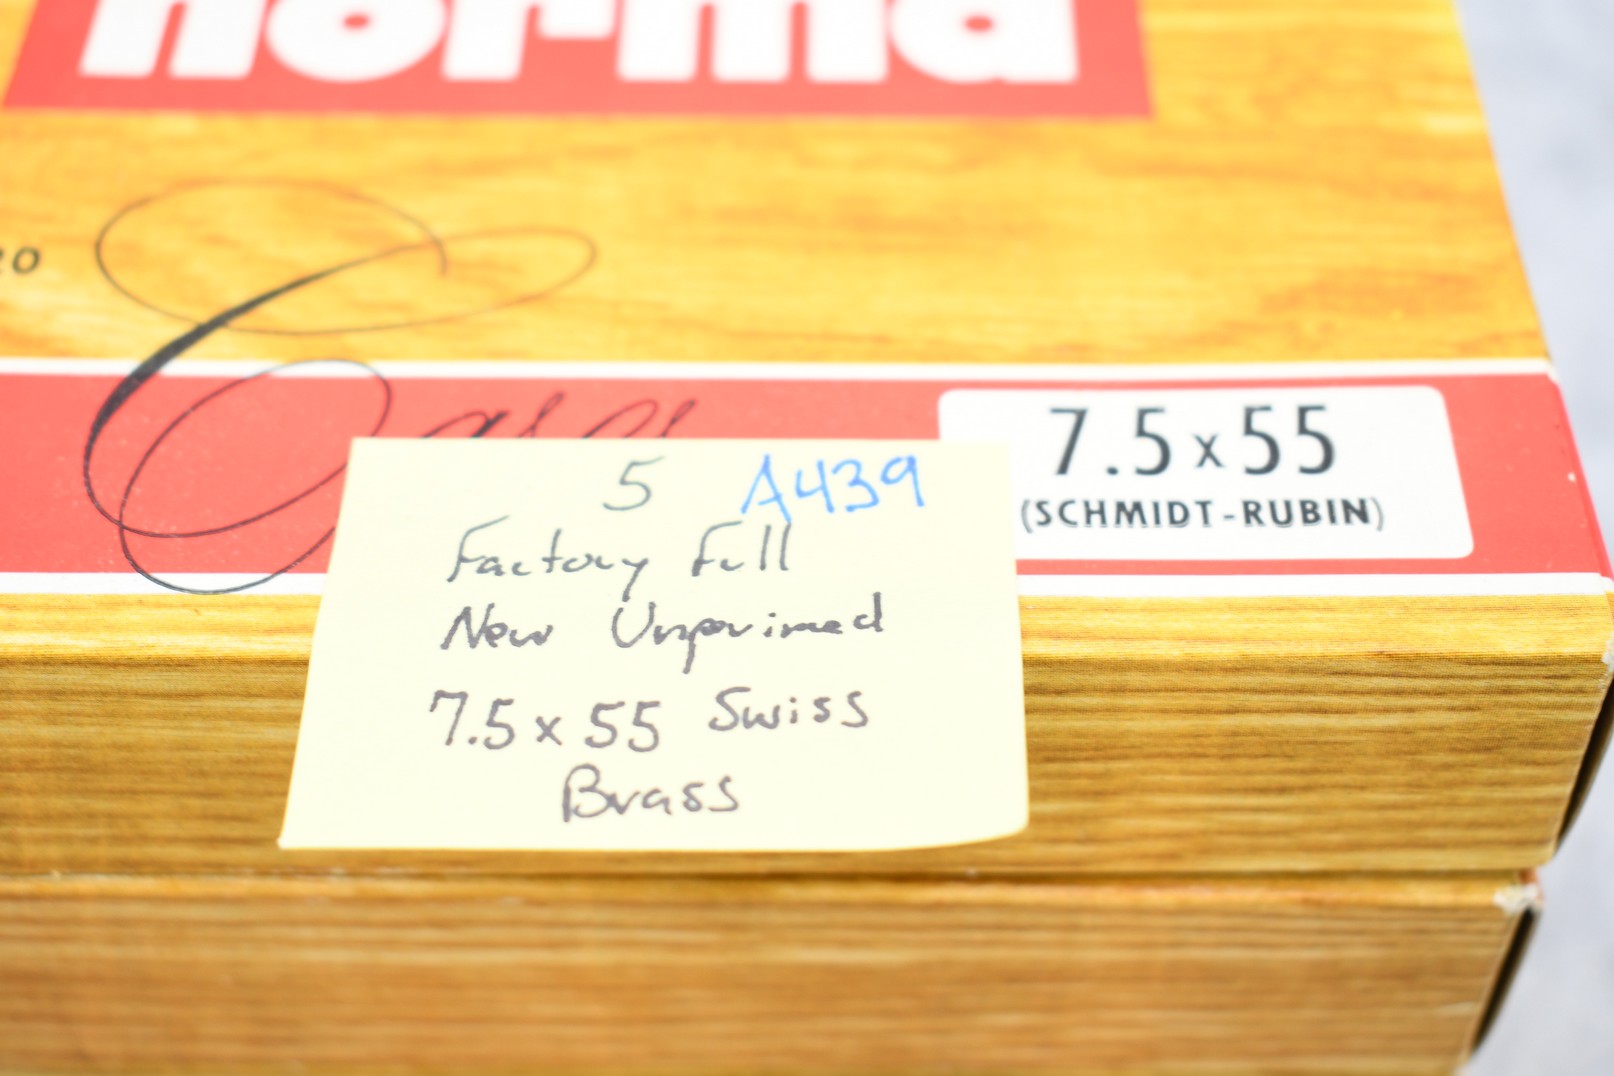 norma
20
Cases
7.5 x 55
(SCHMIDT-RUBIN)
5 A439
Factory Full
New Unprimed
7.5 x 55 Swiss
Brass